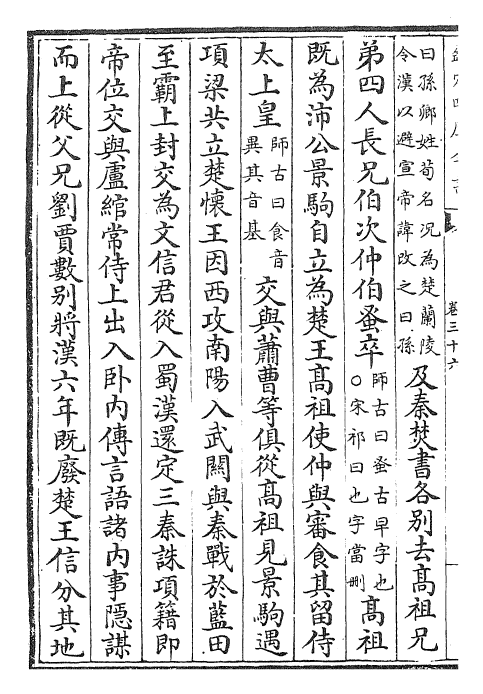 欽定四庫全書
卷三十六
曰孫卿姓荀名况為楚蘭陵
令漢以避宣帝諱改之曰孫
及秦焚書各別去高祖兄
弟四人長兄伯次仲伯蚤卒
師古曰蚤古早字也
○宋祁曰也字當刪
高祖
既為沛公景駒自立為楚王高祖使仲與審食其留侍
太上皇
師古曰食音
異其音基
交與蕭曹等俱從高祖見景駒遇
項梁共立楚懷王因西攻南陽入武關與秦戰於藍田
至霸上封交為文信君從入蜀漢還定三秦誅項籍即
帝位交與盧綰常侍上出入卧内傳言語諸内事隠謀
而上從父兄劉賈數别將漢六年既廢楚王信分其地